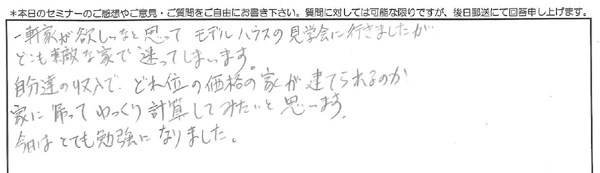 *本日のセミナーのご感想やご意見・ご質問をご自由にお書き下さい。質問に対しては可能な限りですが、後日郵送にて回答申し上げます。
一軒家が欲しいなと思って モデルハウスの見学会に行きましたが
どこも素敵な家で 迷ってしまいます。
自分達の収入で、どれ位の価格の家が建てられるのか
家に帰って ゆっくり計算してみたいと思います。
今日は とても勉強になりました。